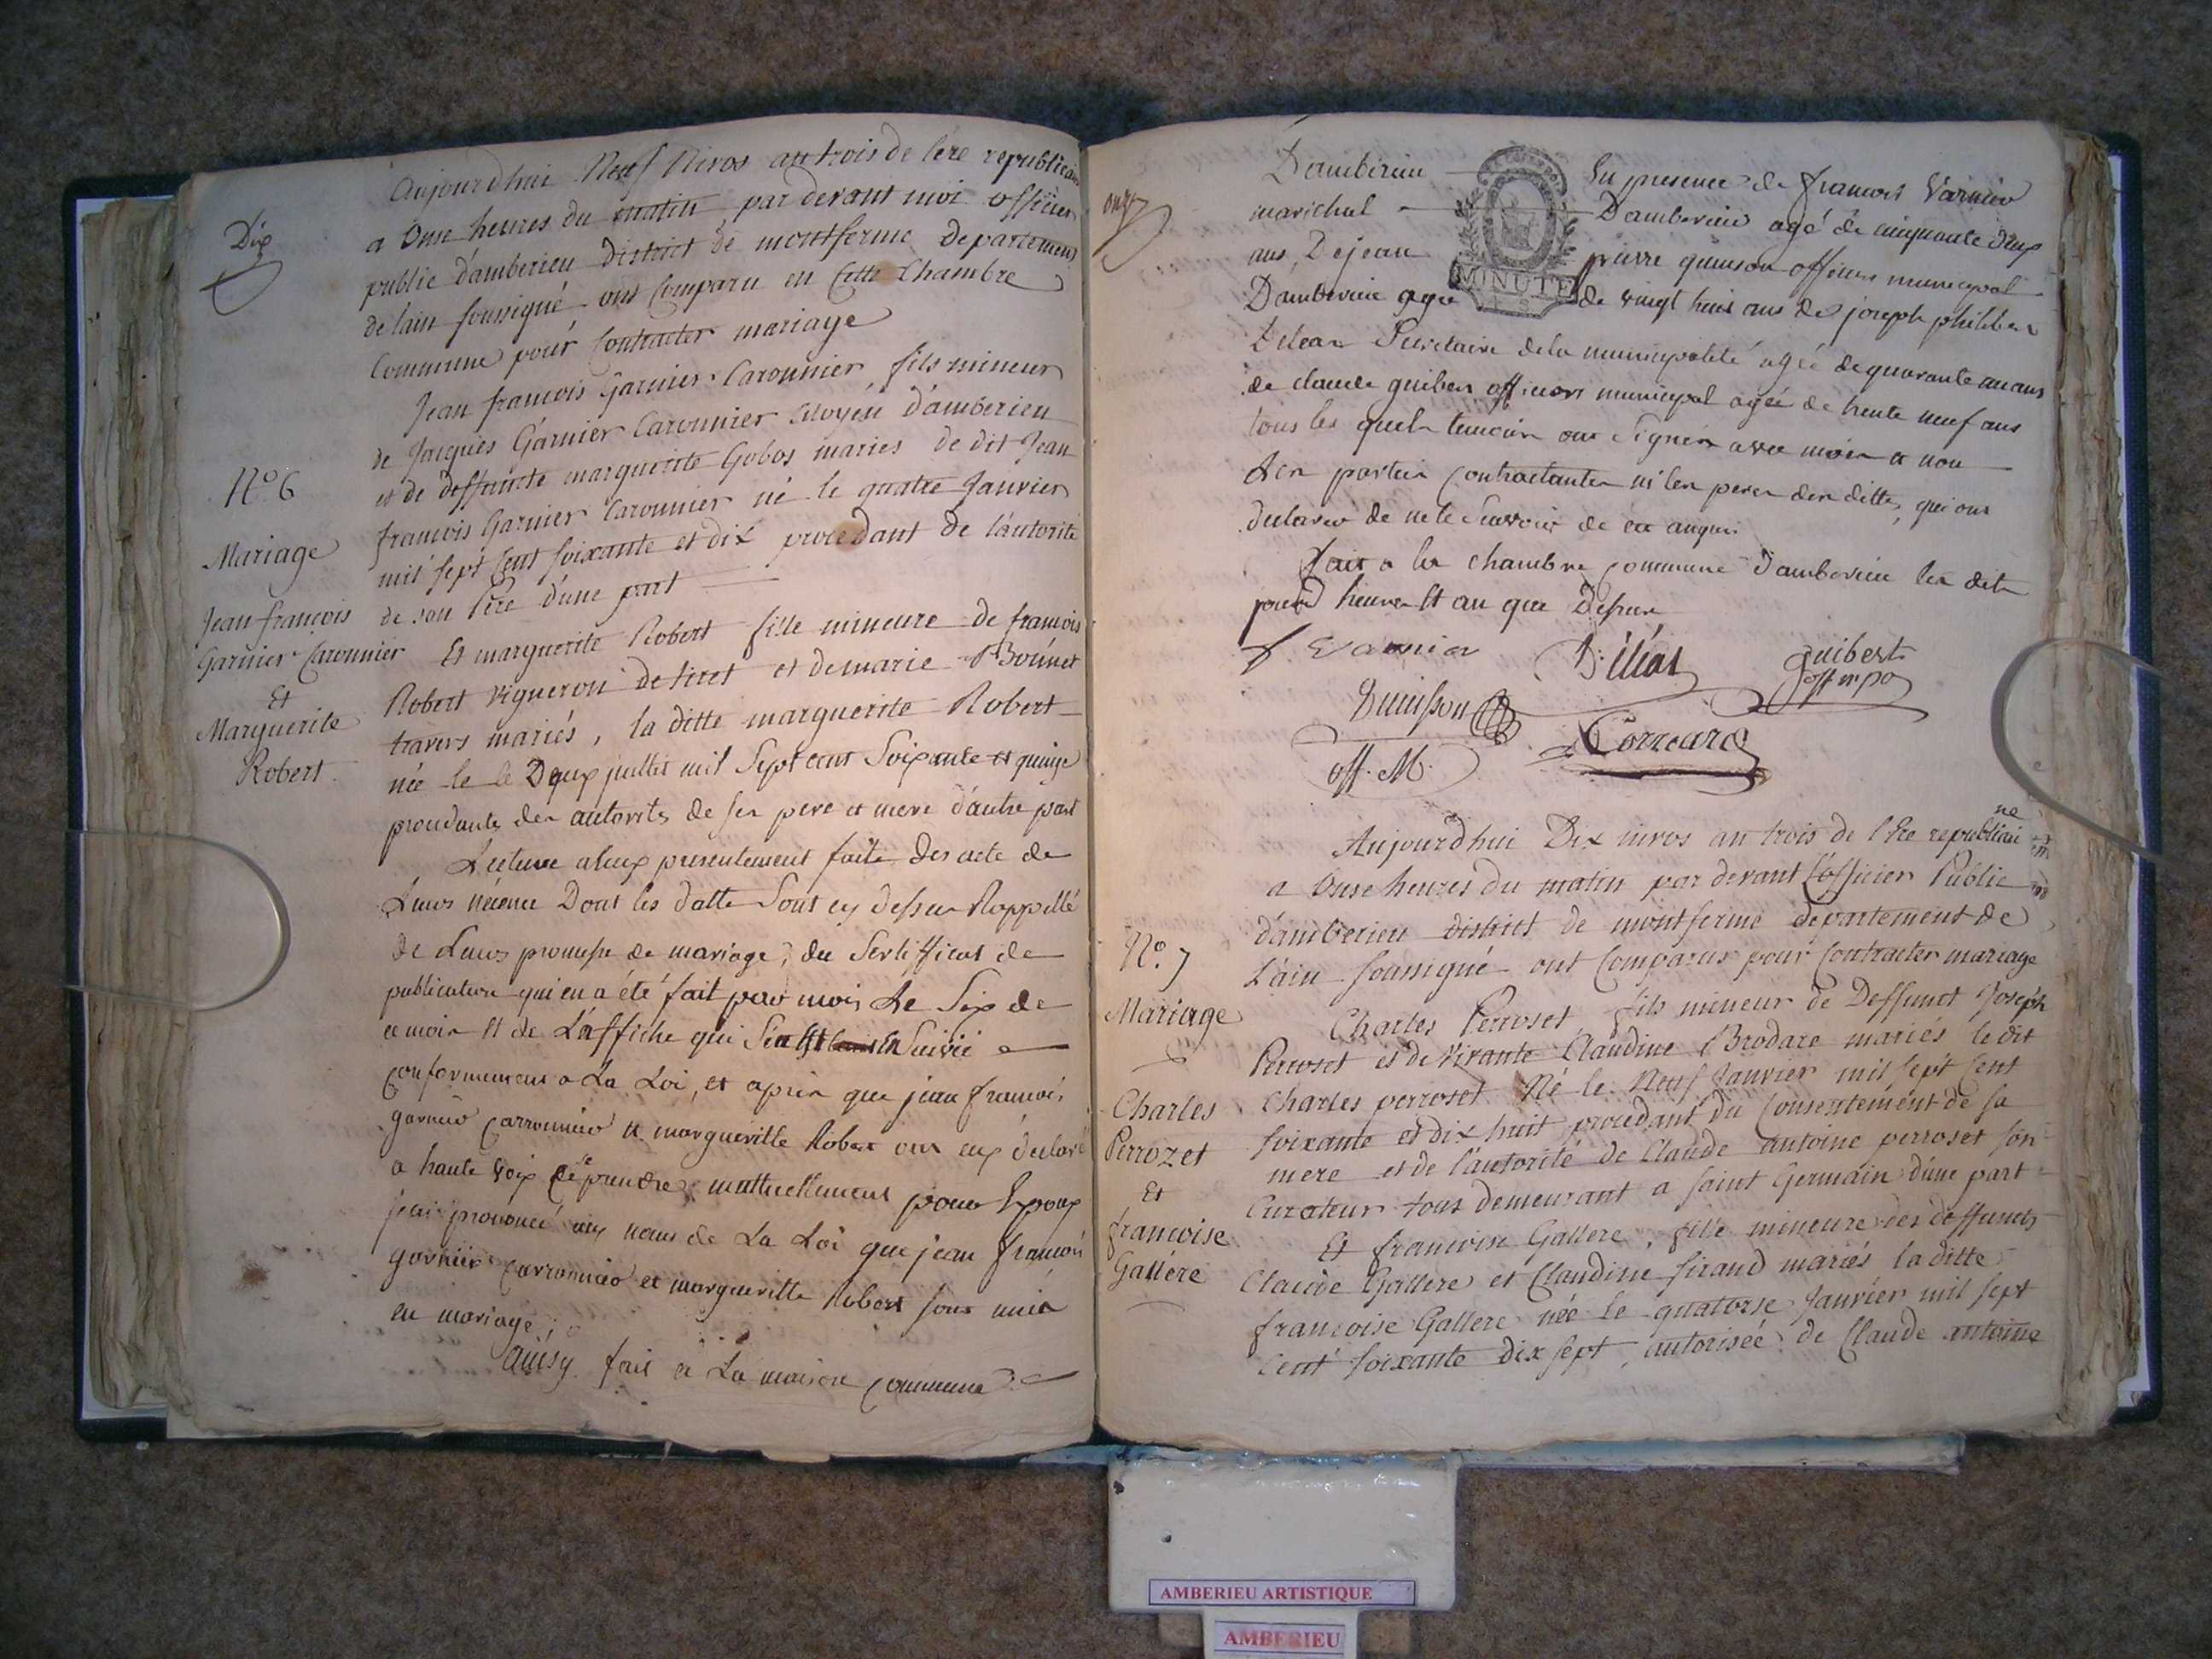 Dix
Aujourdhui Neuf Nivos an trois de lere republicain
a Onse heures du matin par devant moi officier
public d'amberieu District de montferme departement
de lain soussigné ont Comparu en Cette Chambre
Commune pour Contracter mariage
Jean francois Garnier Caronnier fils mineur
de Jacques Garnier Caronnier Citoyen d'amberieu
et de deffunte marguerite Gobos maries de dit Jean
francois Garnier Caronnier né le quatre Janvier
mil sept Cent soixante et dix procedant de l'autorité
de son Père d'une part
N.º 6
Mariage
Jean françois
Garnier Caronnier
Et
Marguerite
Robert
Et marguerite Robert fille mineure de francois
Robert vigneron de tiret et de marie Bonnet
travers mariés, la ditte marguerite Robert
née le le Deux juillet mil Sept cent Soixante et quinze
procedants des autorits de ses pere et mere d'autre part
Lecture a eux presentement faite des acte de
Leurs néence Dont les datte Sont cy dessus Rappellé
de Leurs promesse de mariage, du Sertifficat de
publication qui en a été fait par moi Le Six de
ce mois Et de L'affiche qui Suivie
conformement a La Loi, et après que jean francois
garnier carronnier et margueritte Robert ont eux déclaré
a haute voix se prendre muttuellement pour Epoux
j'ai prononcé au nom de La Loi que jean francois
garnier carronnier et margueritte Robert sont unis
en mariage;
ainsy fait a La maison commune
onze
D'amberieu En presence de francois Varnier
marichal D'amberieu agé de cinquante deux
ans, De jean pierre quinson officier municipal
D'amberieu agée de vingt huit ans de joseph philiber
Déléas Secretaire de la municipalité agée de quarante un ans
de claude guiber officiers municipal agée de trente neuf ans
tous les quels temoins ont Signés avec mois et non
Les parties contractantes ni les peres des dittes, qui ont
declarer de ne le Scavoir de ce enquis
Fait a la chambre commune d'amberieu les dits
jours heures Et an que Dessus
MINUTE
f Varnier
Déléas
guibert
off mpo
Quinson
off. M.
Corrcard
Aujourd'hui Dix nivos an trois de l'Ere republicaine
a Onse heures du matin par devant l'officier Public
d'amberieu district de montferme departement de
L'ain soussigné ont Comparus pour Contracter mariage
N.º 7
Mariage
Charles
Perrozet
Et
françoise
Gallere
Charles Perroset fils mineur de Deffunct Joseph
Perroset et de vivante Claudine Brodare mariés le dit
Charles perroset Né le Neuf Janvier mil sept Cent
soixante et dix huit procedant du Consentement de sa
mere et de l'autorité de Claude antoine perroset son
Curateur tous demeurant a saint Germain d'une part
Et francoise Gallere, fille mineure des deffuncts
Claude Gallere et Claudine sirand mariés la ditte
françoise Gallere née le quatorse Janvier mil sept
Cent soixante dix sept, autorisée de Claude antoine
AMBERIEU ARTISTIQUE
AMBERIEU